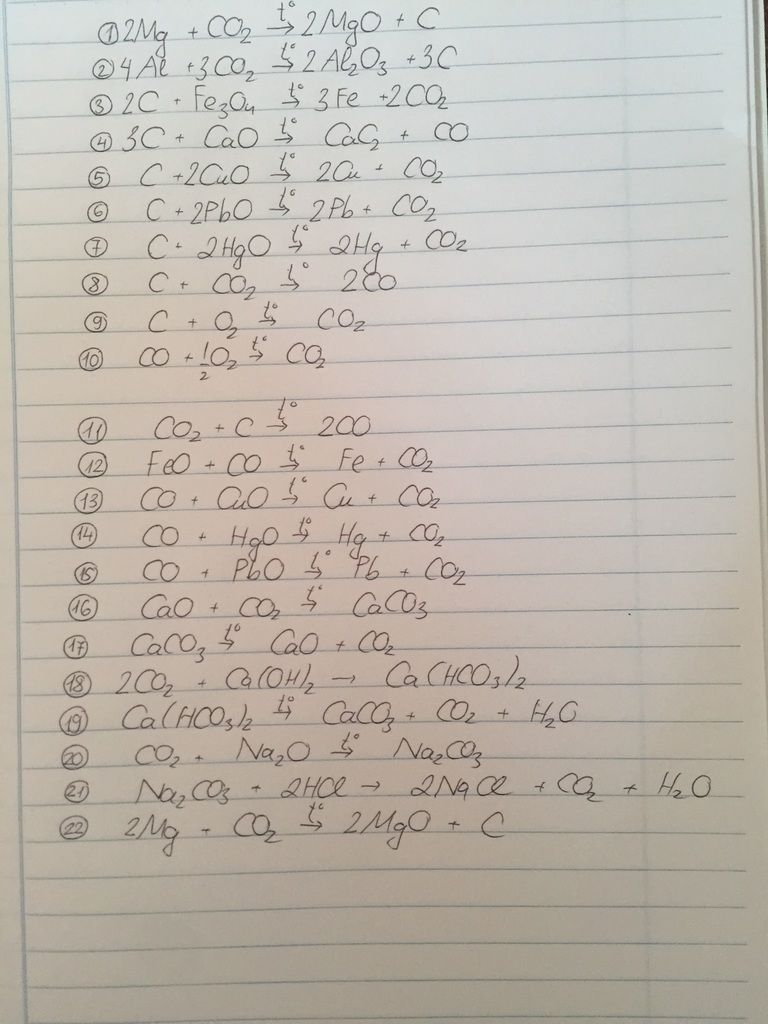 ① 2Mg + CO₂ →t° 2MgO + C
② 4Al + 3CO₂ →t° 2Al₂O₃ + 3C
③ 2C + Fe₃O₄ →t° 3Fe + 2CO₂
④ 3C + CaO →t° CaC₂ + CO
⑤ C + 2CuO →t° 2Cu + CO₂
⑥ C + 2PbO →t° 2Pb + CO₂
⑦ C + 2HgO →t° 2Hg + CO₂
⑧ C + CO₂ →t° 2CO
⑨ C + O₂ →t° CO₂
⑩ CO + ½O₂ →t° CO₂
⑪ CO₂ + C →t° 2CO
⑫ FeO + CO →t° Fe + CO₂
⑬ CO + CuO →t° Cu + CO₂
⑭ CO + HgO →t° Hg + CO₂
⑮ CO + PbO →t° Pb + CO₂
⑯ CaO + CO₂ →t° CaCO₃
⑰ CaCO₃ →t° CaO + CO₂
⑱ 2CO₂ + Ca(OH)₂ → Ca(HCO₃)₂
⑲ Ca(HCO₃)₂ →t° CaCO₃ + CO₂ + H₂O
⑳ CO₂ + Na₂O →t° Na₂CO₃
㉑ Na₂CO₃ + 2HCl → 2NaCl + CO₂ + H₂O
㉒ 2Mg + CO₂ →t° 2MgO + C